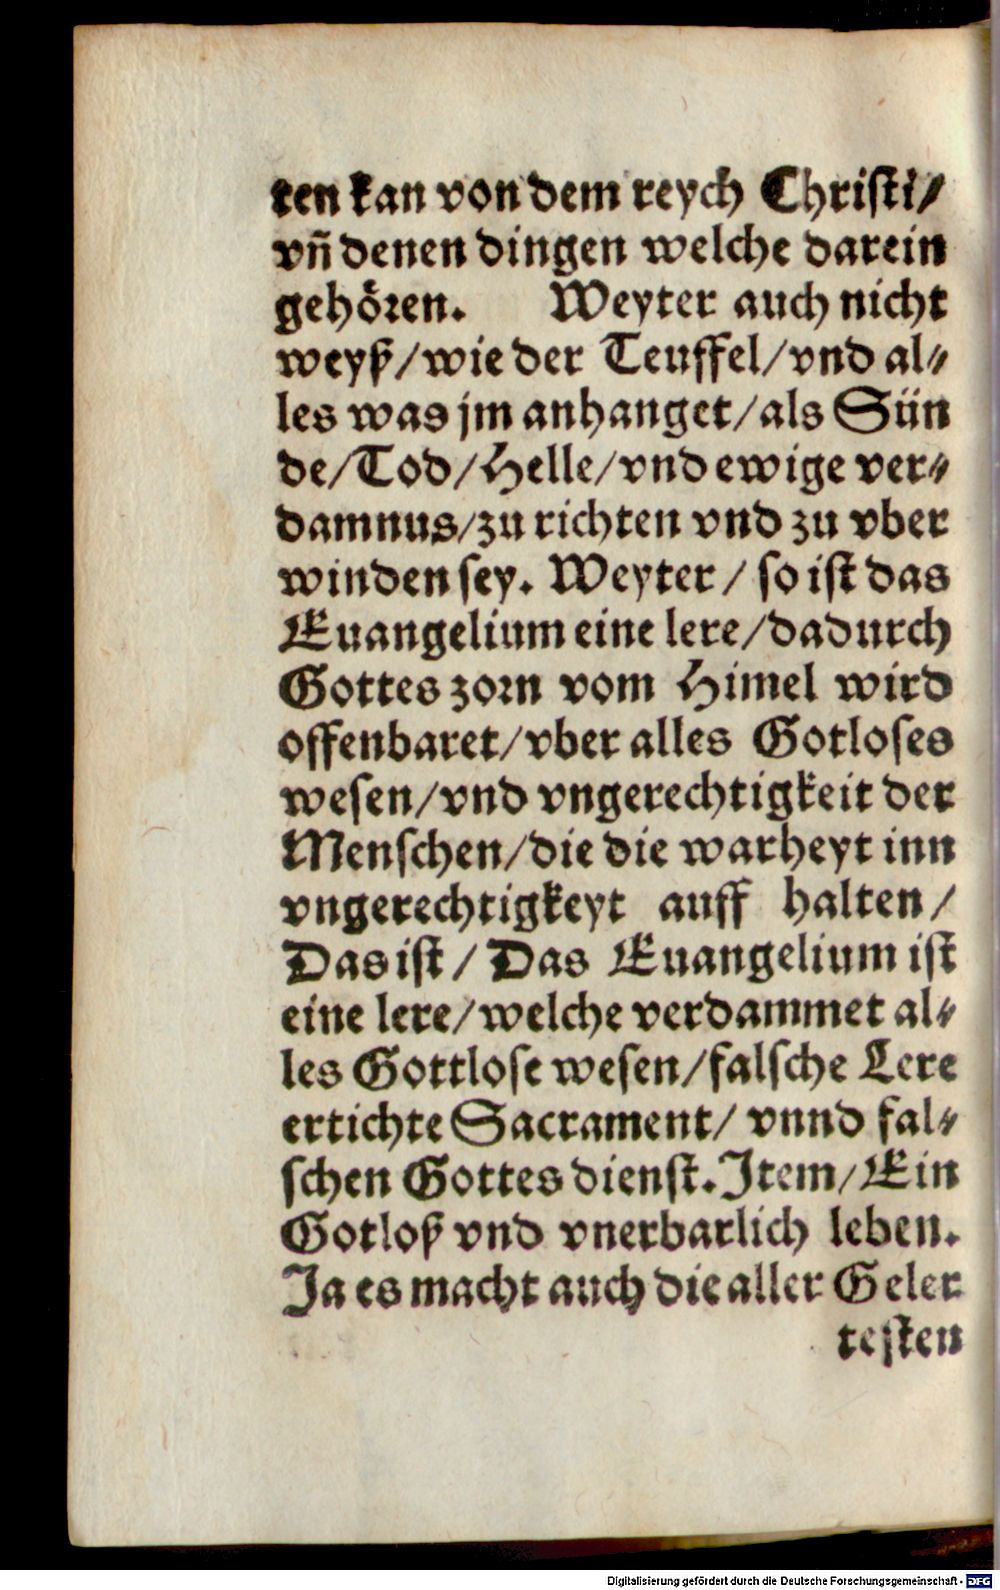 ten kan von dem reych Christi/
vñ denen dingen welche darein
gehören. Weyter auch nicht
weyß/wie der Teuffel/vnd al⸗
les was jm anhanget/als Sün
de/Tod/Helle/vnd ewige ver⸗
damnus/zu richten vnd zu vber
winden sey. Weyter/ so ist das
Euangelium eine lere/dadurch
Gottes zorn vom Himel wird
offenbaret/vber alles Gotloses
wesen/vnd vngerechtigkeit der
Menschen/die die warheyt inn
vngerechtigkeyt auff halten/
Das ist/ Das Euangelium ist
eine lere/welche verdammet al⸗
les Gottlose wesen/falsche Lere
ertichte Sacrament/ vnnd fal⸗
schen Gottes dienst. Item/Ein
Gotloß vnd vnerbarlich leben.
Ja es macht auch die aller Geler
testen
Digitalisierung gefördert durch die Deutsche Forschungsgemeinschaft - DFG